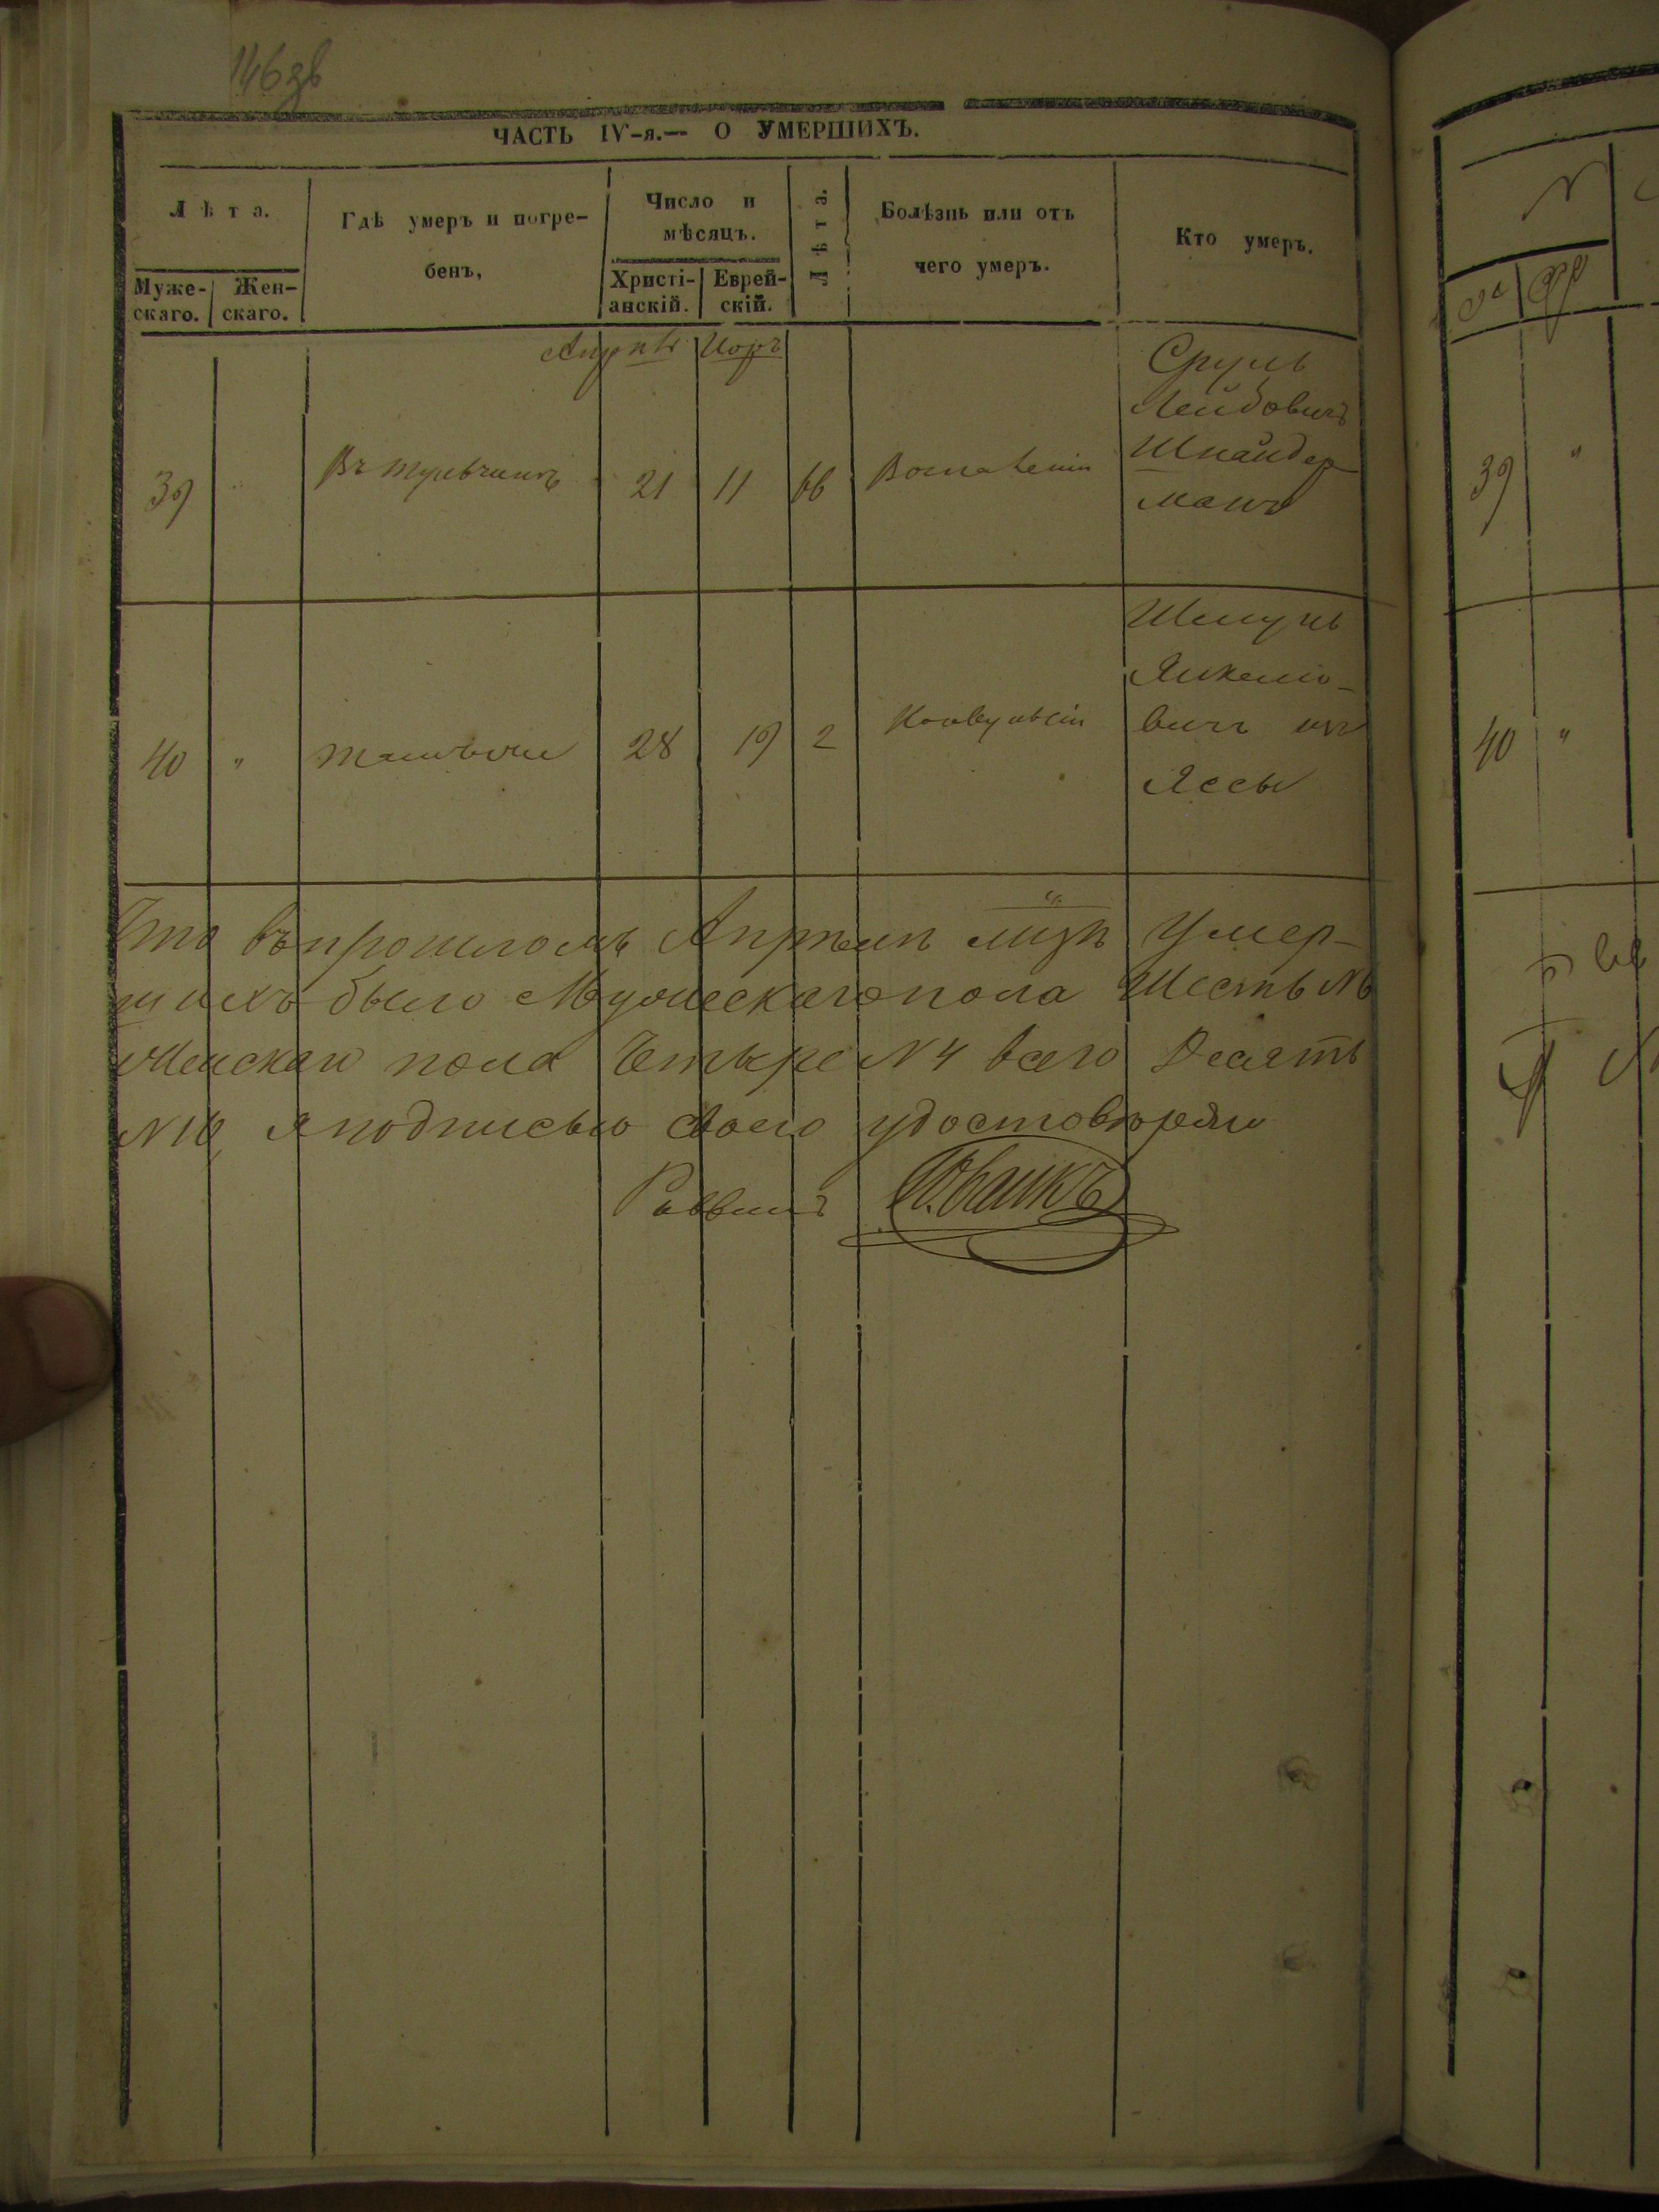 146 зв
ЧАСТЬ IV-я.— О УМЕРШИХЪ.
Лѣта.
Мужескаго.
Женскаго.
Гдѣ умеръ и погре-
бенъ,
Число и
мѣсяцъ.
Христі-
анскій.
Еврей-
скій.
Лѣта.
Болѣзнь или отъ
чего умеръ.
Кто умеръ.
Апрель Иоръ
39 Въ Тульчинѣ 21 11 66
Сруль
Лейбовичъ
Шнайдер
манъ
40 " 28 19 2
Шмуль
Янкелио-
вичъ изъ
Яссы
Что въ прошломъ Апрѣлѣ мцѣ Умер-
шихъ было Мужескаго пола Шесть №6
Женскаго пола Четыре №4 всего Десять
№10, я подписью своею удостовѣряю
Раввинъ
39 "
40 "